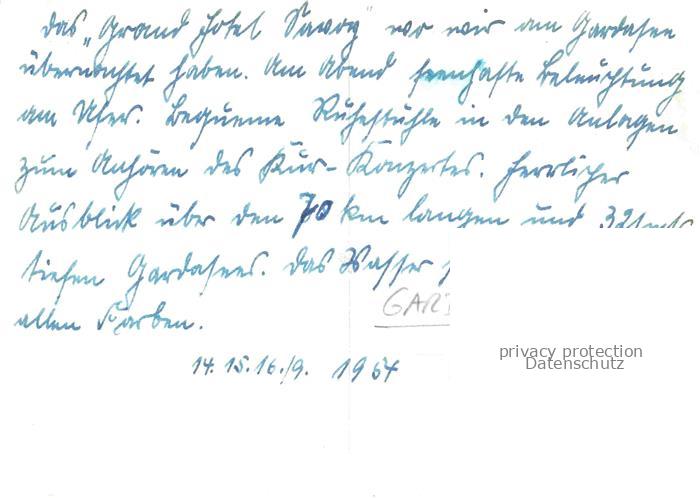 Das „Grand Hotel Savoy" wo wir am Gardasee
übernachtet haben. Am Abend feenhafte Beleuchtung
am Ufer. Bequeme Ruhestühle in den Anlagen
zum Anhören des Kur-Konzertes. Herrlicher
Ausblick über den 70 km langen und
tiefen Gardasees. Das Wasser
allen Farben.
14. 15. 16./9. 1954
privacy protection
Datenschutz